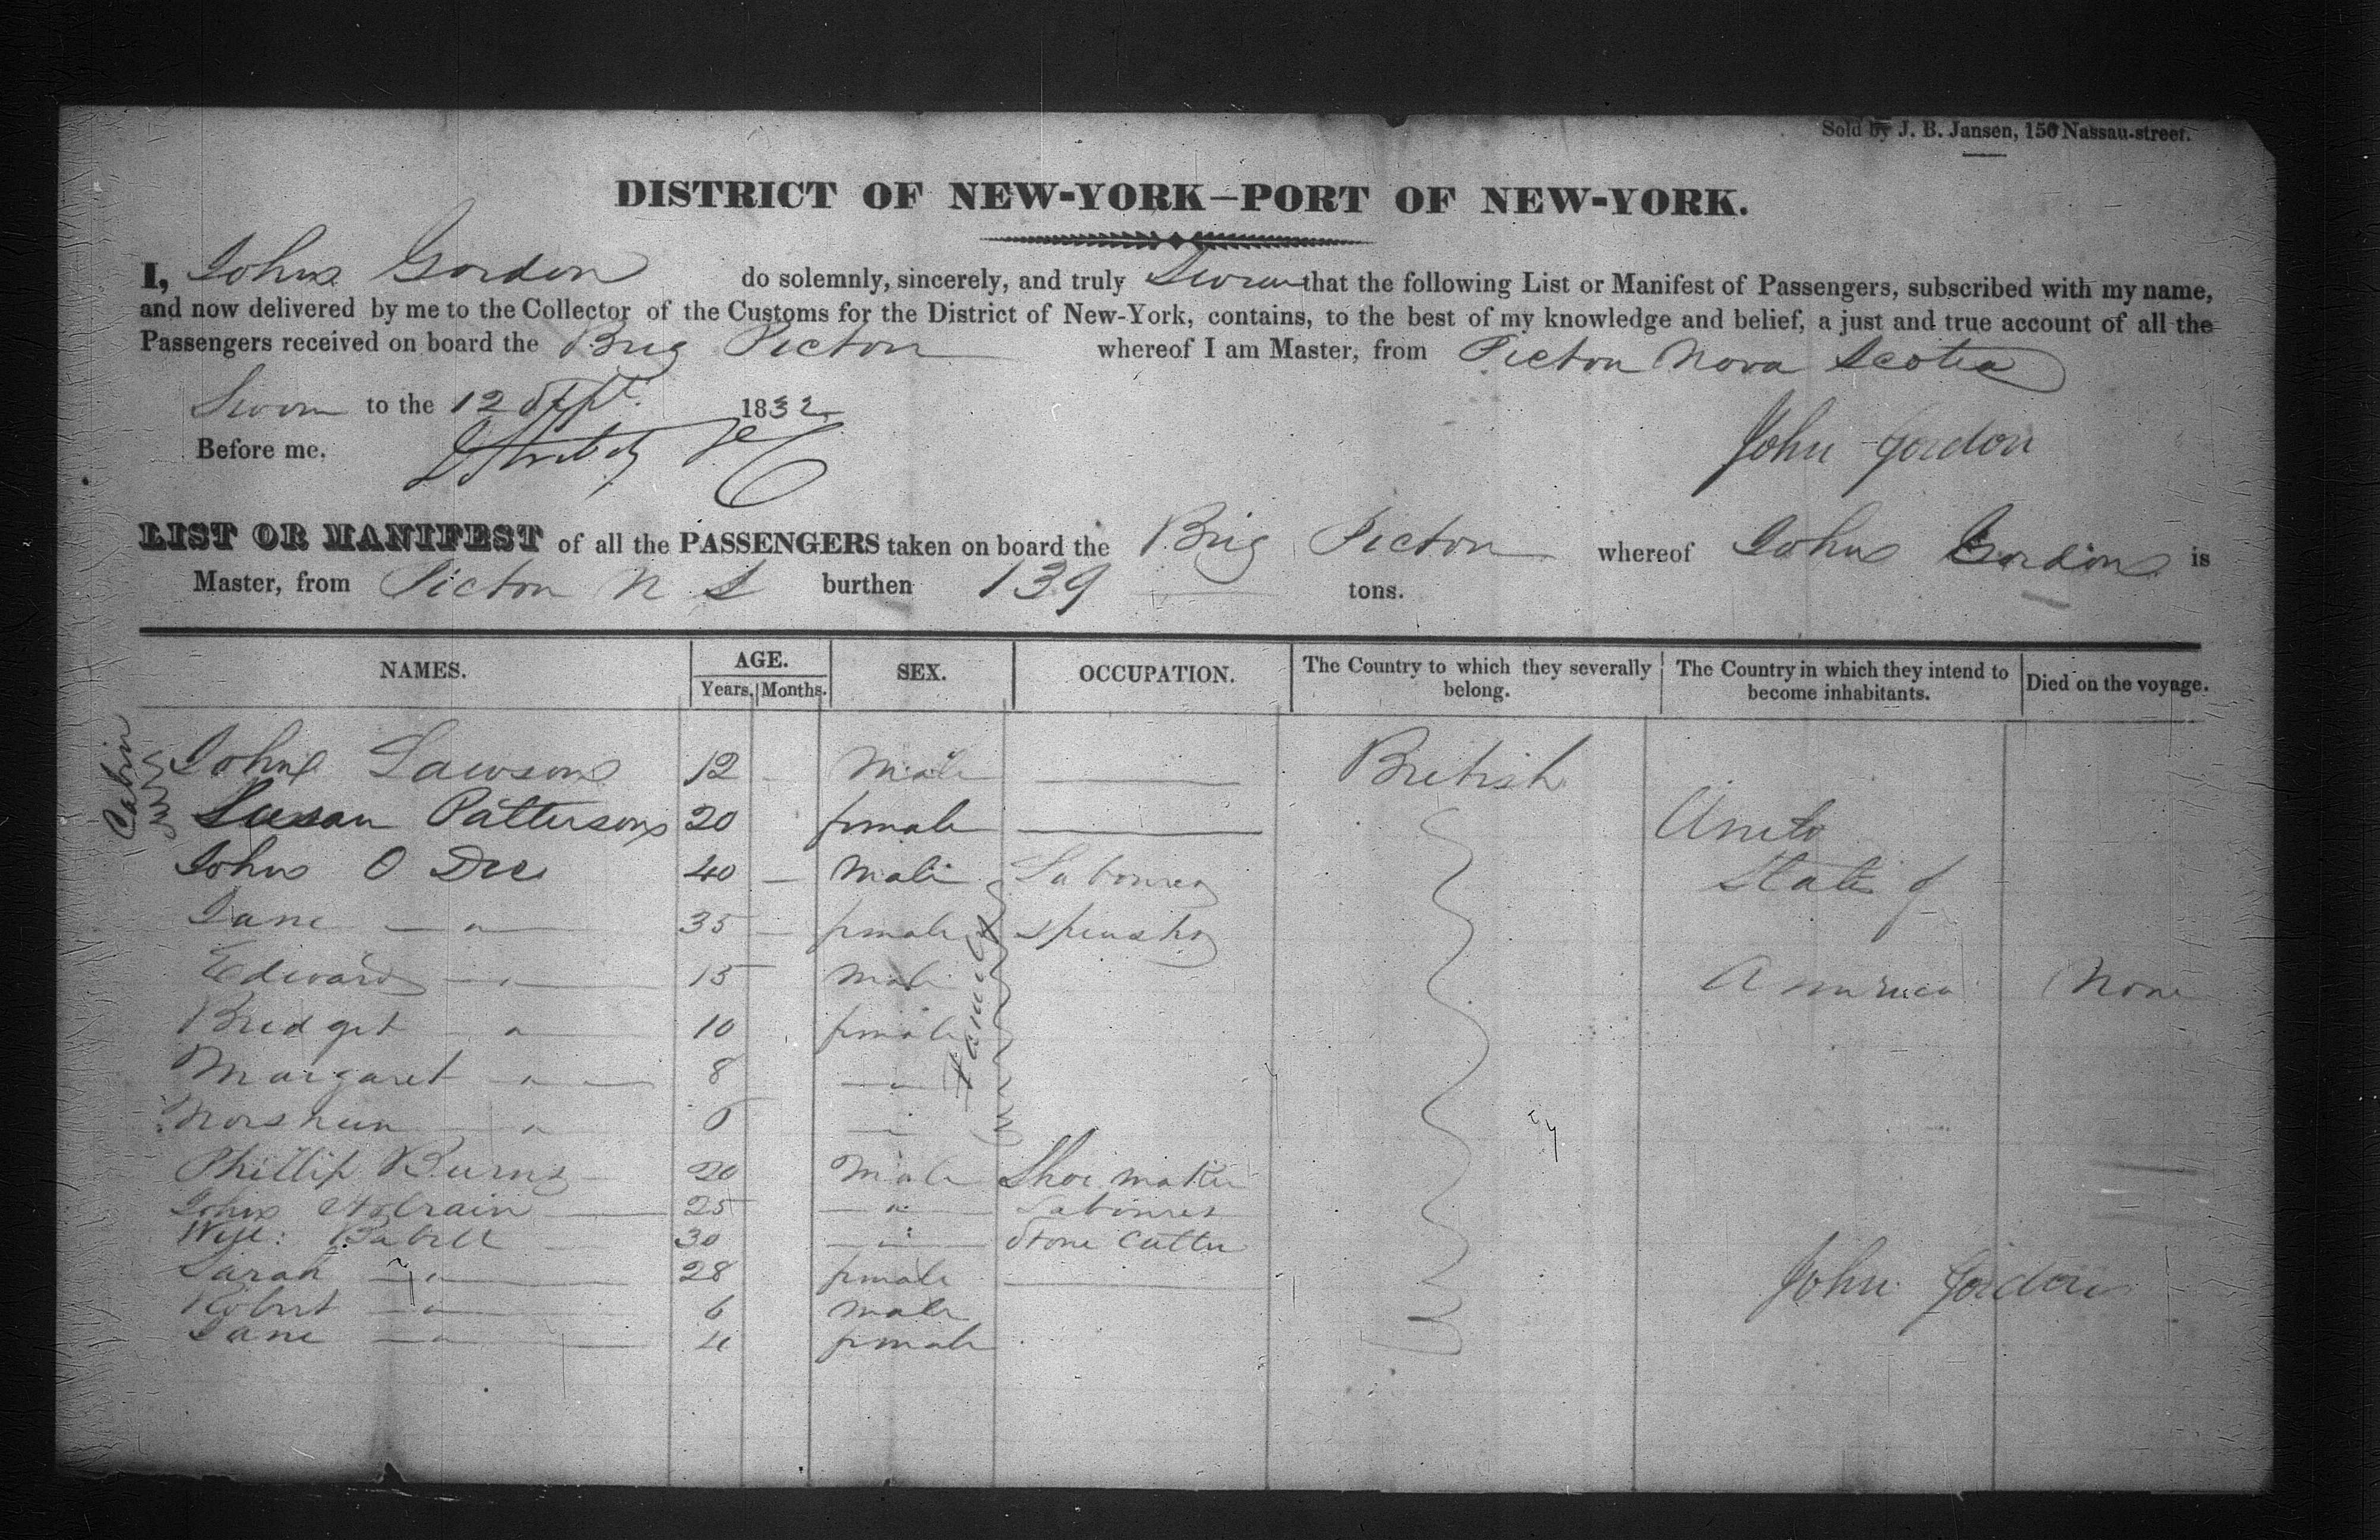 Sold by J. B. Jansen, 150 Nassau-street.
DISTRICT OF NEW-YORK—PORT OF NEW-YORK.
I, John Gordon do solemnly, sincerely, and truly Swear that the following List or Manifest of Passengers, subscribed with my name,
and now delivered by me to the Collector of the Customs for the District of New-York, contains, to the best of my knowledge and belief, a just and true account of all the
Passengers received on board the Brig Picton whereof I am Master, from Picton Nova Scotia
Sworn to the 12 Sept. 1832
Before me,
John Gordon
LIST OR MANIFEST of all the PASSENGERS taken on board the Brig Picton whereof John Gordon is
Master, from Picton N S burthen 139 tons.
NAMES. AGE. Years. Months. SEX. OCCUPATION. The Country to which they severally belong. The Country in which they intend to become inhabitants. Died on the voyage.
Cabin
John Lawson 12 — Male — British
Susan Patterson 20 female — United
John O Dee 40 — Male Labourer States of
Jane — " — 35 — female Spinster
Family
Edward — " — 15 Male America None
Bridget — " — 10 female
Margaret — " — 8 — " —
— " — — " —
Phillip Burns — 20 Male Shoe maker
John — 25 — " — Labourer
Wm: — 30 — " — Stone Cutter
Sarah — " — 28 female — John Gordon
Robert — " — 6 male
Jane — " — 4 female